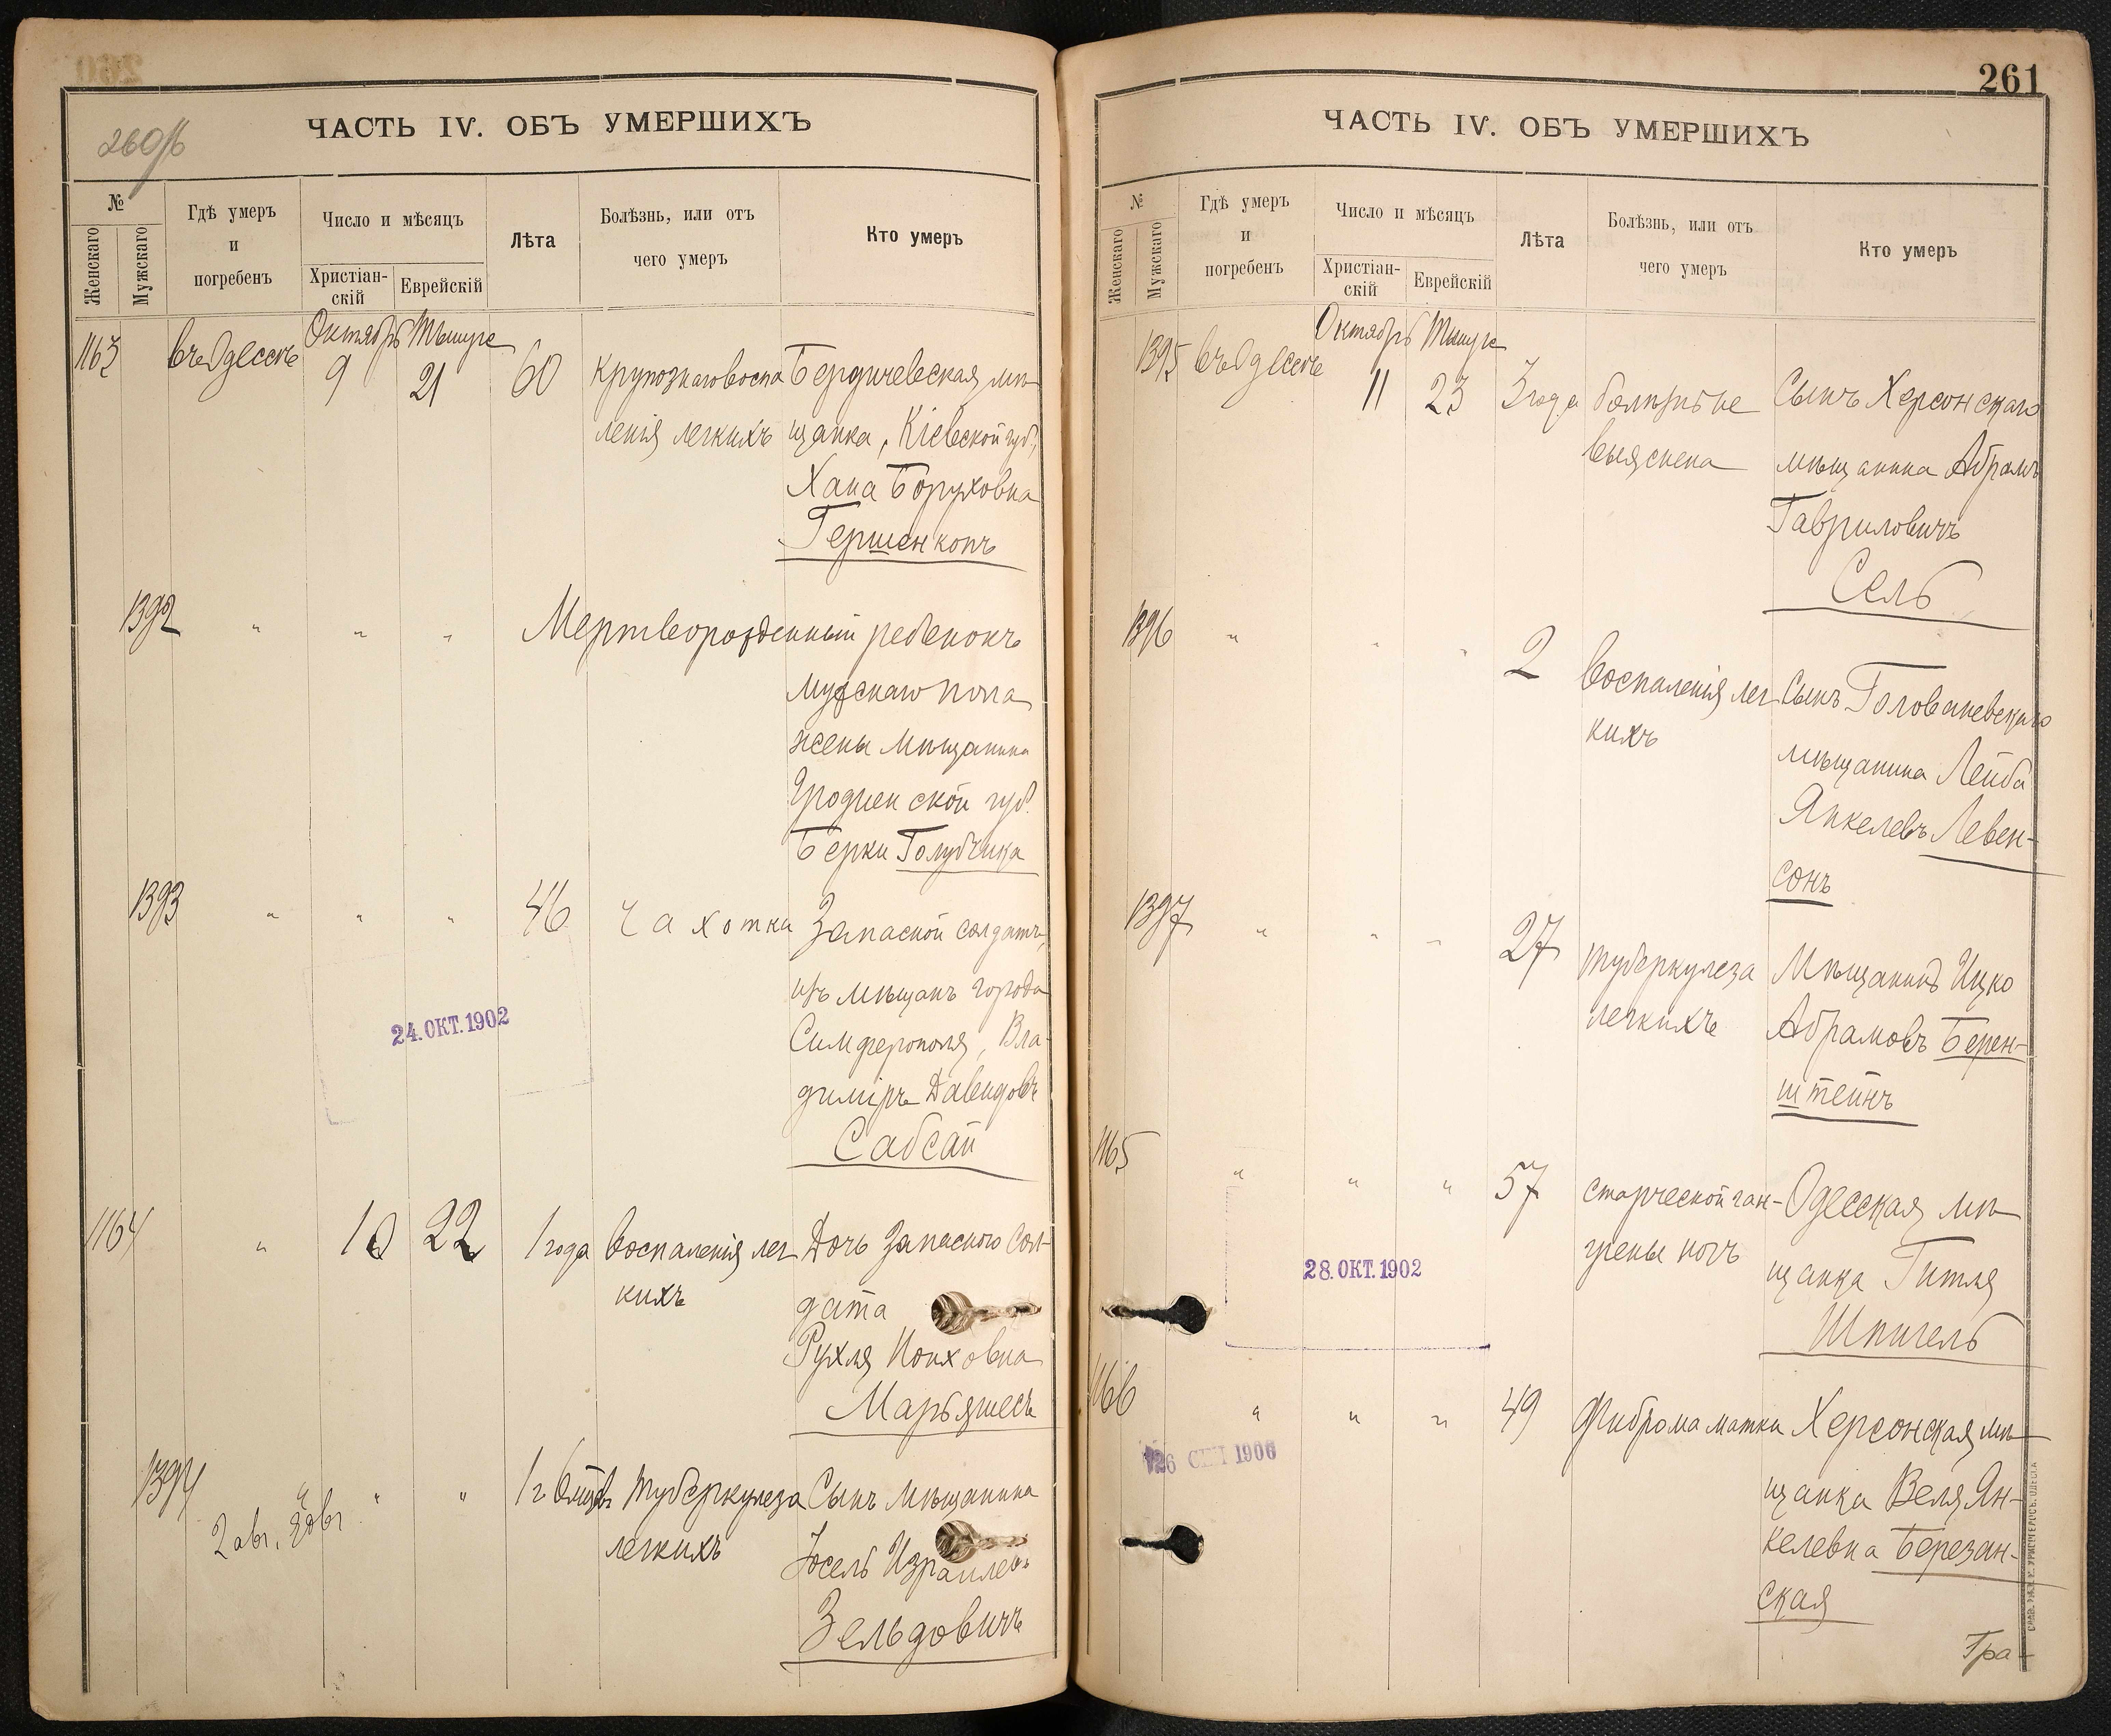 260/б
ЧАСТЬ IV. ОБЪ УМЕРШИХЪ
№
Женскаго
Мужскаго
Гдѣ умеръ
и
погребенъ
Число и мѣсяцъ
Христіан-
скій
Еврейскій
Лѣта
Болѣзнь, или отъ
чего умеръ
Кто умеръ
Октябрь Тышре
1163 въ Одессѣ 9 21 60 крупознаго воспа Бердичевская мѣ
ленія легкихъ щанка, Кіевской губ.,
Хана Боруховна
Гершенкопъ
1392 " " " Мертворожденный ребенокъ
мужскаго пола
жены мѣщанина
Гродненской губ.
Берки Голубчика
1393 " " " 46 чахотка Запасной солдатъ,
изъ мѣщанъ города
Симферополя, Вла-
диміръ Давидовъ
Сабсай
24.ОКТ.1902
1164 " 10 22 1 года воспаленія лег Дочь запасного сол-
кихъ дата
Рухля Ионховна
Марьяшесъ
1394 " " " 1 г. 6 мцвъ туберкулеза Сынъ мѣщанина
легкихъ Іосель Израилевъ
Зельдовичъ
261
ЧАСТЬ IV. ОБЪ УМЕРШИХЪ
№
Женскаго
Мужскаго
Гдѣ умеръ
и
погребенъ
Число и мѣсяцъ
Христіан-
скій
Еврейскій
Лѣта
Болѣзнь, или отъ
чего умеръ
Кто умеръ
Октябрь Тышре
1395 въ Одессѣ 11 23 3 года болѣзнь не Сынъ Херсонскаго
выяснена мѣщанина Абрамъ
Гавриловичъ
Сель
1396 " " " 2 воспаленія лег Сынъ Голованевскаго
кихъ мѣщанина Лейба
Янкелевъ Левен-
сонъ
1397 " " " 27 туберкулеза Мѣщанинъ Ицко
легкихъ Абрамовъ Берен-
штейнъ
1165 " " " 57 старческой ган- Одесская мѣ
грены ногъ щанка Гитля
Шпигель
28.ОКТ.1902
1166 " " " 49 фиброма матки Херсонская мѣ
щанка Веля Ян-
келевна Березан-
ская
26 СЕН 1906
Гра-